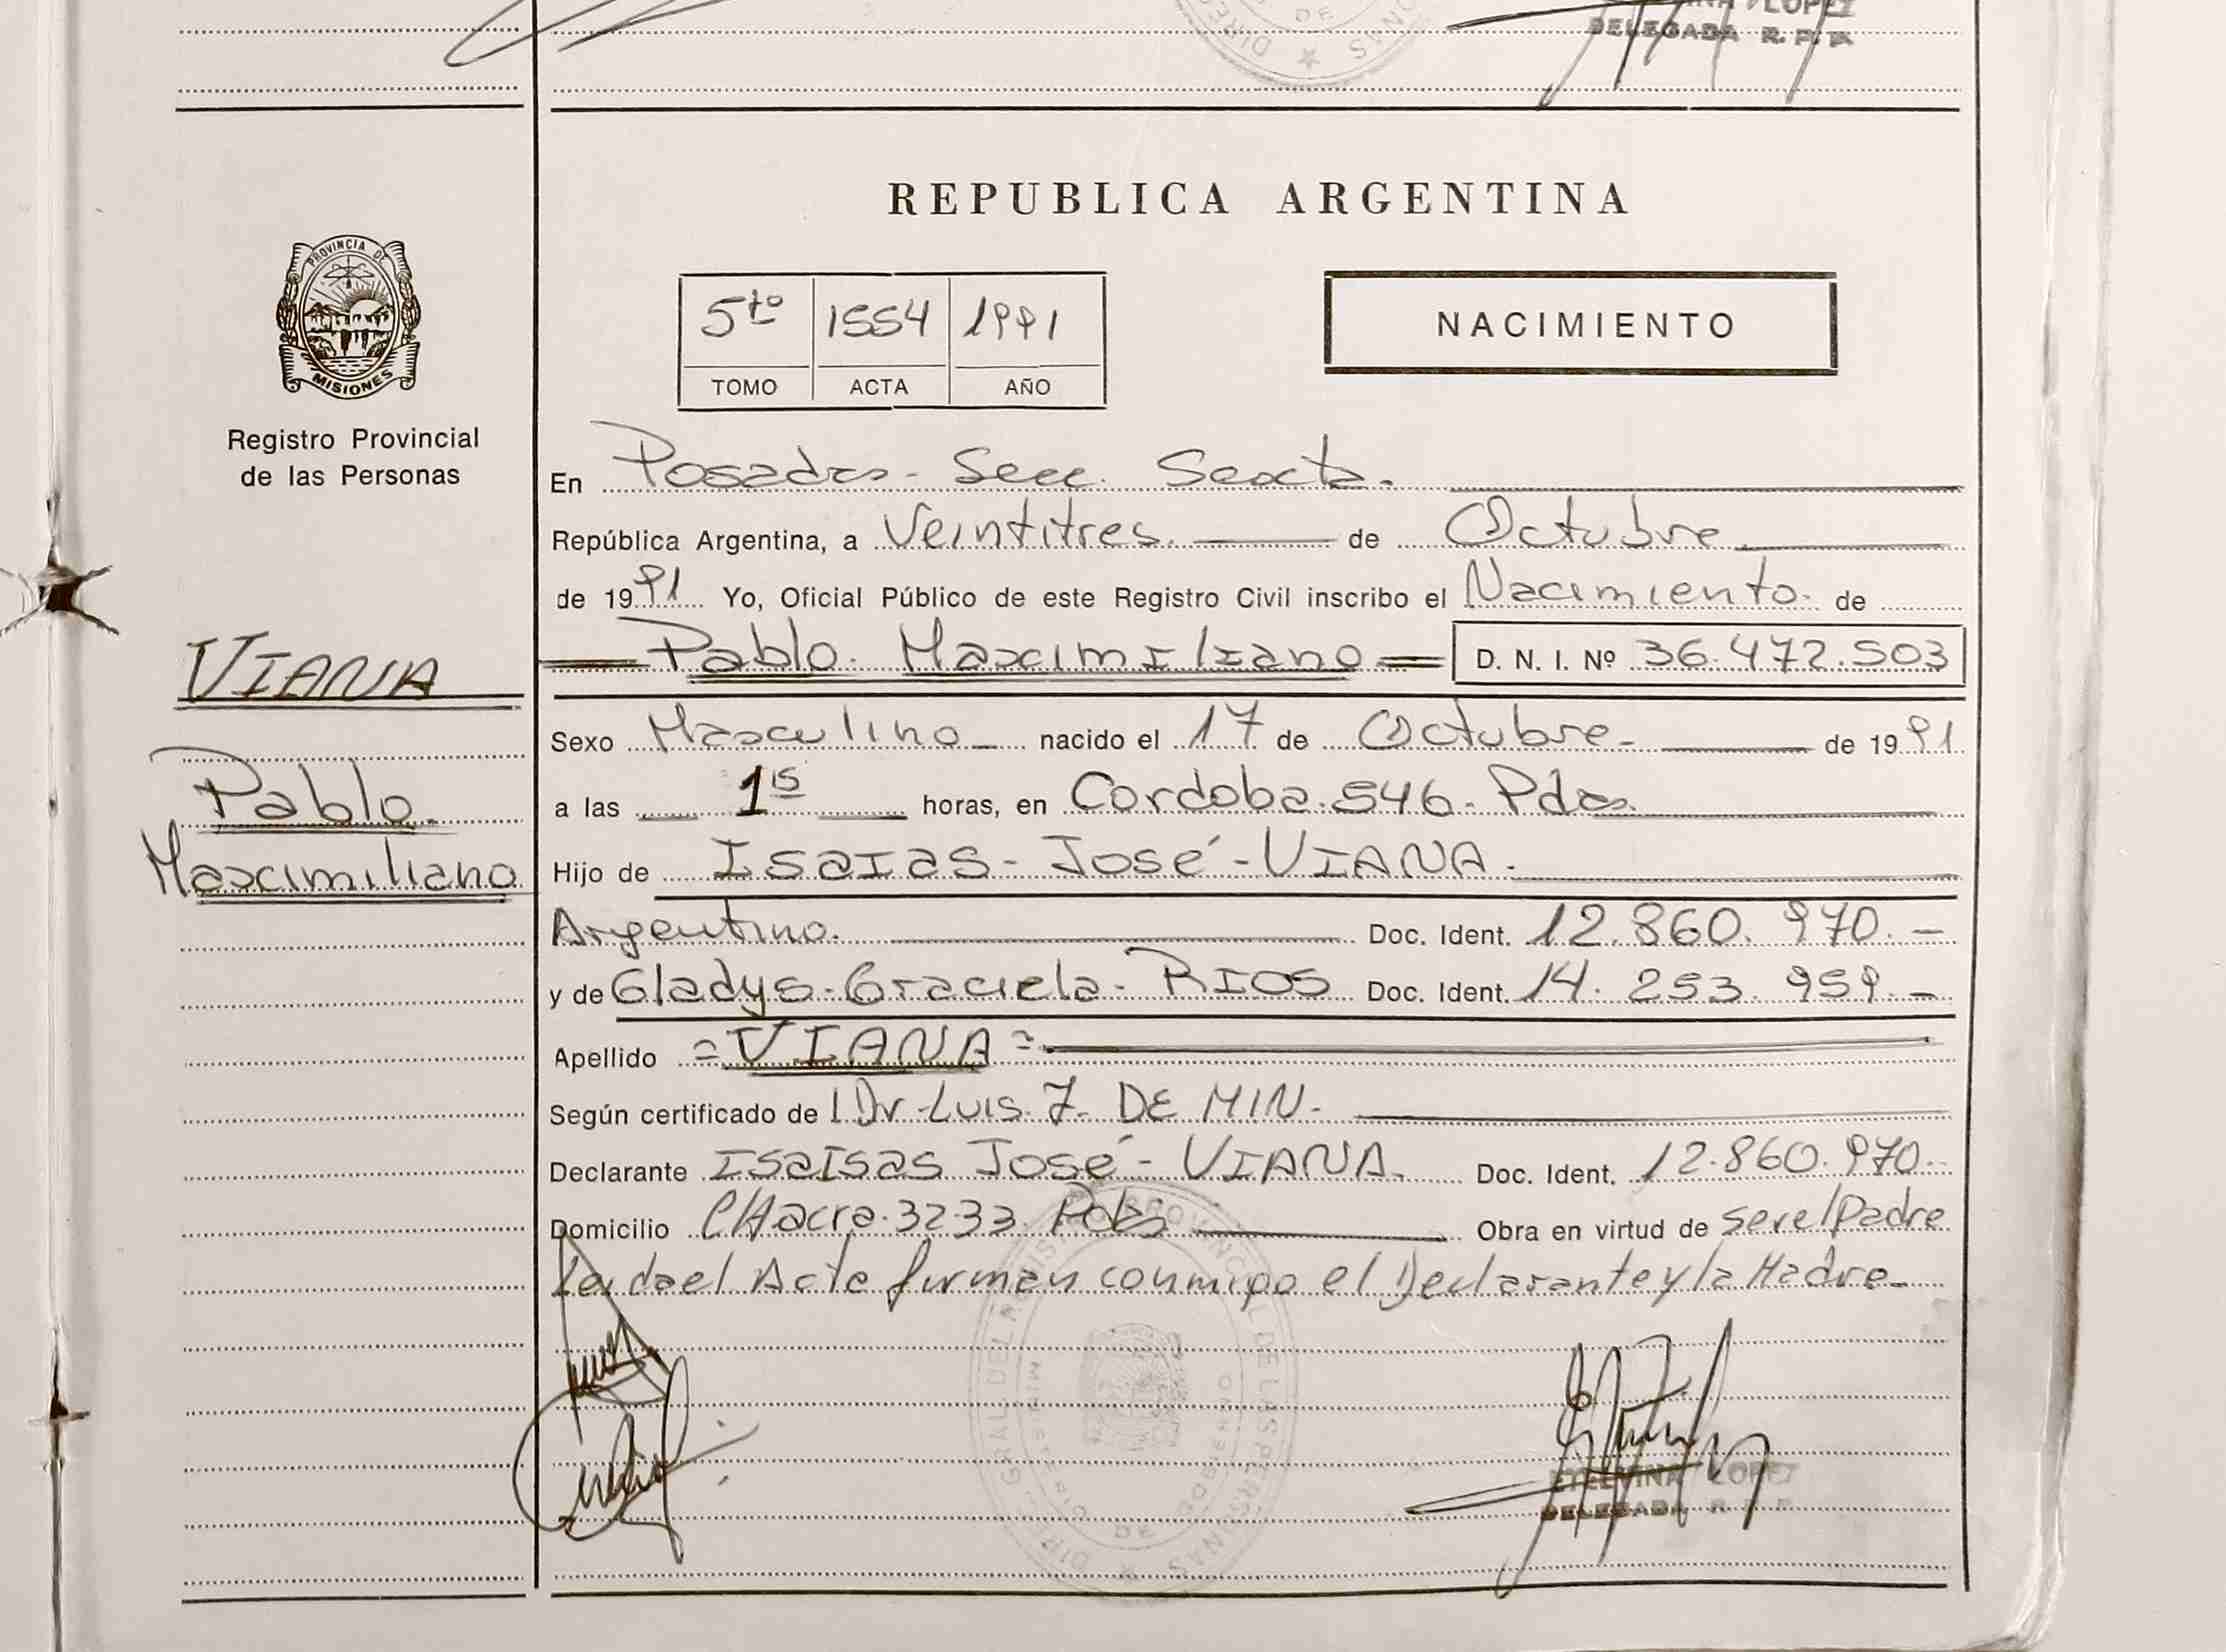 LOPEZ
DELEGADA R. P. P.
REPUBLICA ARGENTINA
PROVINCIA DE
MISIONES
Registro Provincial
de las Personas
5to 1554 1991
TOMO ACTA AÑO
NACIMIENTO
En Posadas - Secc. Sexta.
República Argentina, a Veintitres de Octubre
de 1991 Yo, Oficial Público de este Registro Civil inscribo el Nacimiento de
VIANA
Pablo Maximiliano D. N. I. Nº 36.472.503
Sexo Masculino nacido el 17 de Octubre de 1991
Pablo
a las 1 15 horas, en Cordoba 546 - Pdas.
Maximiliano
Hijo de Isaias - José - VIANA.
Argentino. Doc. Ident. 12.860.970.-
y de Gladys - Graciela - RIOS Doc. Ident. 14.253.959.-
Apellido = VIANA =
Según certificado de l Dr. Luis J. DE MIN.
Declarante Isaisas José - VIANA. Doc. Ident. 12.860.970.-
Domicilio CHacra 32-33 Pdas Obra en virtud de ser el Padre
Leida el Acta firman conmigo el Declarante y la Madre
DIREC. GRAL. DEL REGISTRO PROVINCIAL DE LAS PERSONAS
MINISTERIO DE GOBIERNO
ETELVINA LOPEZ
DELEGADA R. P. P.